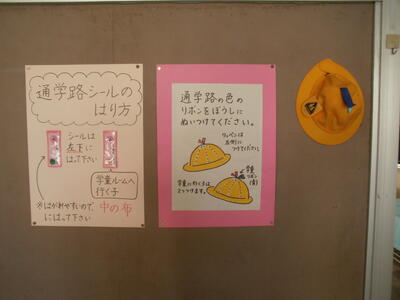 通学路シールの
はり方
シールは
左下に
はって下さい
学童ルームへ
行く子
※はがれやすいので、中の布
にはって下さい
通学路の色の
リボンをぼうしに
ぬいつけてください。
ワッペンは
左側に
つけてください。
学童に行く子は
2つつけます。
学童
リボン
(青)